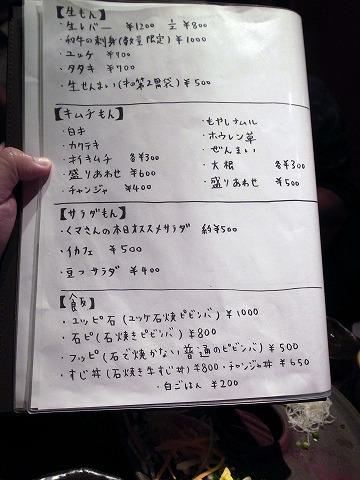 【生もん】
・生レバー ¥1200 ½ ¥800
・和牛の刺身(数量限定) ¥1000
・ユッケ ¥900
・タタキ ¥900
・生せんまい(牛の第2胃袋) ¥500
【キムチもん】
・白キ
・カクテキ
・オイキムチ 各¥300
・盛りあわせ ¥600
・チャンジャ ¥400
・もやしナムル
・ホウレン草
・ぜんまい
・大根 各¥300
・盛りあわせ ¥500
【サラダもん】
・くマさんの本日オススメサラダ 約¥500
・イカフェ ¥500
・豆っサラダ ¥400
【飯】
・ユッピ石(ユッケ石焼ピビンバ) ¥1000
・石ピ(石焼きピビンバ) ¥800
・フッピ(石で焼かない普通のピビンバ) ¥500
・すじ丼(石焼き牛すじ丼) ¥800 ・チャンジャ丼 ¥650
・白ごはん ¥200